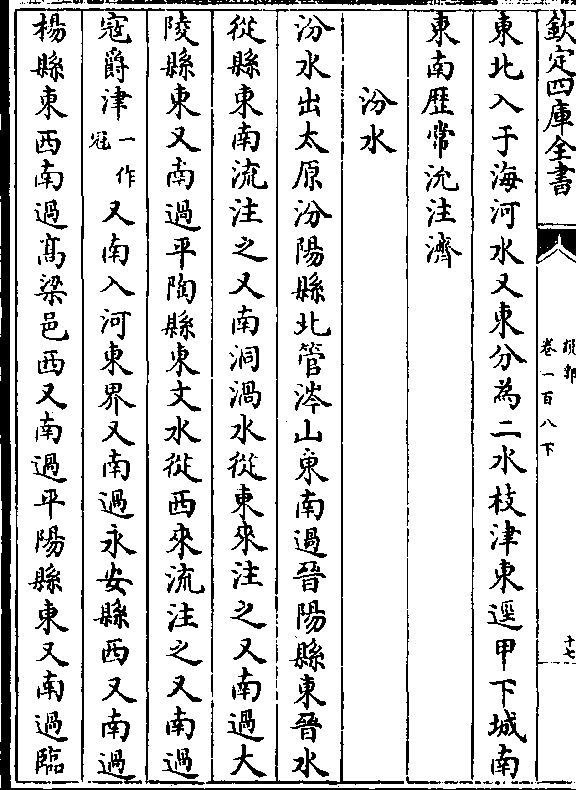 欽定四庫全書
說郛
卷一百八下
十七
東北入于海河水又東分為二水枝津東逕甲下城南
東南歷常沇注濟
汾水
汾水出太原汾陽縣北管涔山東南過晉陽縣東晉水
從縣東南流注之又南洞渦水從東來注之又南過大
陵縣東又南過平陶縣東文水從西來流注之又南過
冠爵津一作冠又南入河東界又南過永安縣西又南過
楊縣東西南過髙梁邑西又南過平陽縣東又南過臨